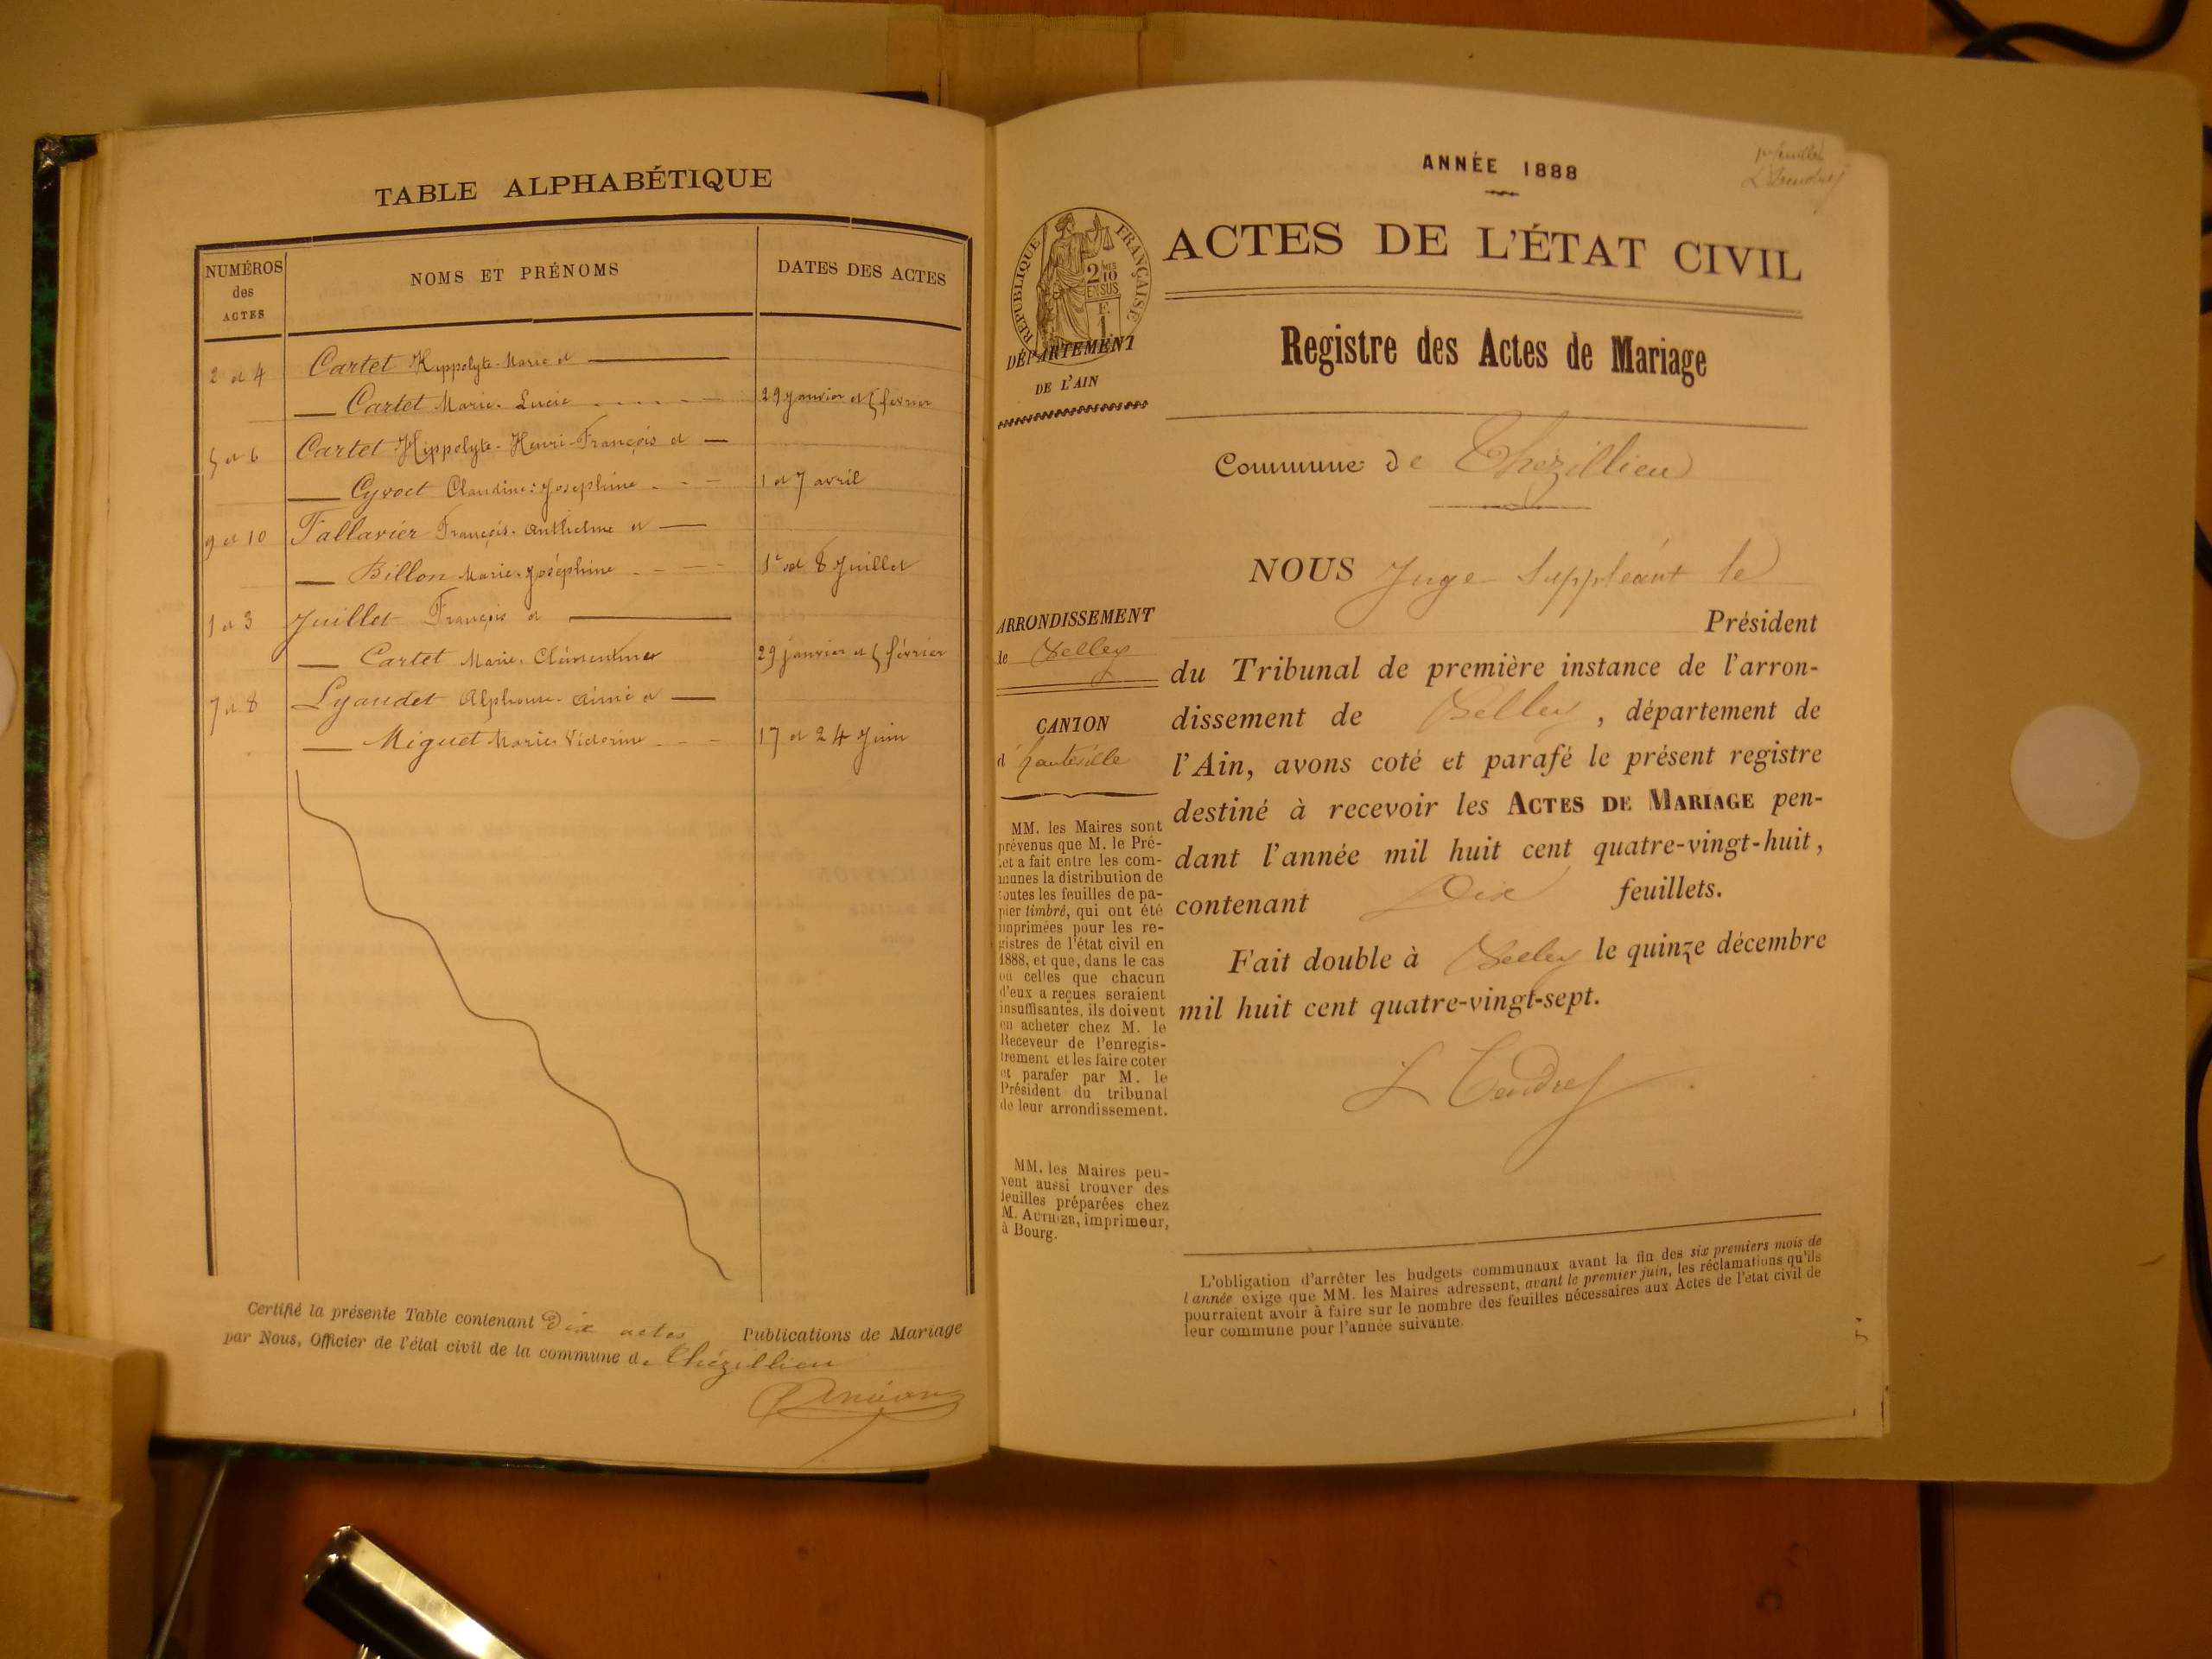 TABLE ALPHABÉTIQUE
NUMÉROS des ACTES
NOMS ET PRÉNOMS
DATES DES ACTES
2 et 4 Cartet Hippolyte-Marie et
Cartet Marie-Lucie 29 janvier et 5 février
5 et 6 Cartet Hippolyte-Henri-François et
Cyvoct Claudine-Joséphine 1 et 7 avril
9 et 10 Tallavier François-Anthelme et
Billon Marie-Joséphine 1er et 8 Juillet
1 et 3 Juillet François et
Cartet Marie-Clémentine 29 janvier et 5 février
7 et 8 Lyaudet Alphonse-Aimé et
Miguet Marie-Victorine 17 et 24 Juin
Certifié la présente Table contenant Dix actes Publications de Mariage
par Nous, Officier de l'état civil de la commune de Thézillieu
1er feuillet
ANNÉE 1888
RÉPUBLIQUE FRANÇAISE
2 MES 10
EN SUS
F.
1.
ACTES DE L'ÉTAT CIVIL
DÉPARTEMENT
DE L'AIN
Registre des Actes de Mariage
Commune de Thézillieu
NOUS Juge Suppléant le
Président
ARRONDISSEMENT
de Belley
CANTON
d'hauteville
du Tribunal de première instance de l'arron-
dissement de Belley, département de
l'Ain, avons coté et parafé le présent registre
destiné à recevoir les ACTES DE MARIAGE pen-
dant l'année mil huit cent quatre-vingt-huit,
contenant Dix feuillets.
Fait double à Belley le quinze décembre
mil huit cent quatre-vingt-sept.
MM. les Maires sont
prévenus que M. le Pré-
fet a fait entre les com-
munes la distribution de
toutes les feuilles de pa-
pier timbré, qui ont été
imprimées pour les re-
gistres de l'état civil en
1888, et que, dans le cas
où celles que chacun
d'eux a reçues seraient
insuffisantes, ils doivent
en acheter chez M. le
Receveur de l'enregis-
trement et les faire coter
et parafer par M. le
Président du tribunal
de leur arrondissement.
MM. les Maires peu-
vent aussi trouver des
feuilles préparées chez
M. AUTHIER, imprimeur,
à Bourg.
L'obligation d'arrêter les budgets communaux avant la fin des six premiers mois de
l'année exige que MM. les Maires adressent, avant le premier juin, les réclamations qu'ils
pourraient avoir à faire sur le nombre des feuilles nécessaires aux Actes de l'état civil de
leur commune pour l'année suivante.